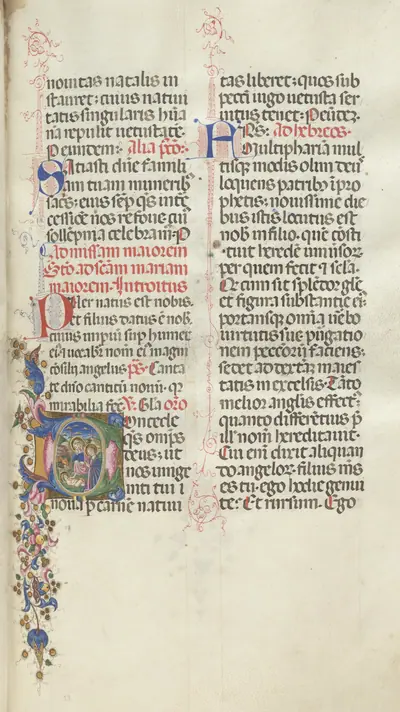 nouitas natalis in
stauret: cuius natiui
tatis singularis hūa
na reppulit uetustatē.
P eundem. Alia pco.
Satiasti dn̄e famili
am tuam muneribꝰ
sacis: eius sēp q̄s inte
cessiōe nos refoue cui
sollempnia celebramꝰ. P
Ad missam maiorem
Stō ad scām mariam
maiorem. Introitus
Puer natus est nobis.
et filius datus ē nob.
cuius impiū sup humer
eiꝰ
ōsilij angelus ps. Canta
te dn̄o canticū nouū. qꝛ
mirabilia fec. V. Gl̄a oro
Concede
q̄s omps
deus: ut
nos unige
niti tui
noua p carnē natiui
tas liberet: quos sub
peccī iugo uetusta ser
uitus tenet. P eūdez.
Ad hebreos.
Multiphariā mul
tisqꝫ modis olim deus
loquens patribꝰ ī pro
phetis: nouissime die
bus istis locutus est
nob in filio. quē cōsti
tuit heredē uniuisor
per quem fecit ⁊ sela.
Qui cum sit splēdor gl̄e
et figura substantie eiꝰ
portansqꝫ om̄ia uerbo
uirtutis sue purgatio
nem peccorū faciens:
sedet ad dextā maies
tatis in excelsis. Tāto
melior anglis effectꝰ
quanto differētius p
ill nom̄ hereditauit.
Cui em̄ dixit aliquan
do angelor. filius mīs
es tu. ego hodie genui
te: Et rursum. Ego